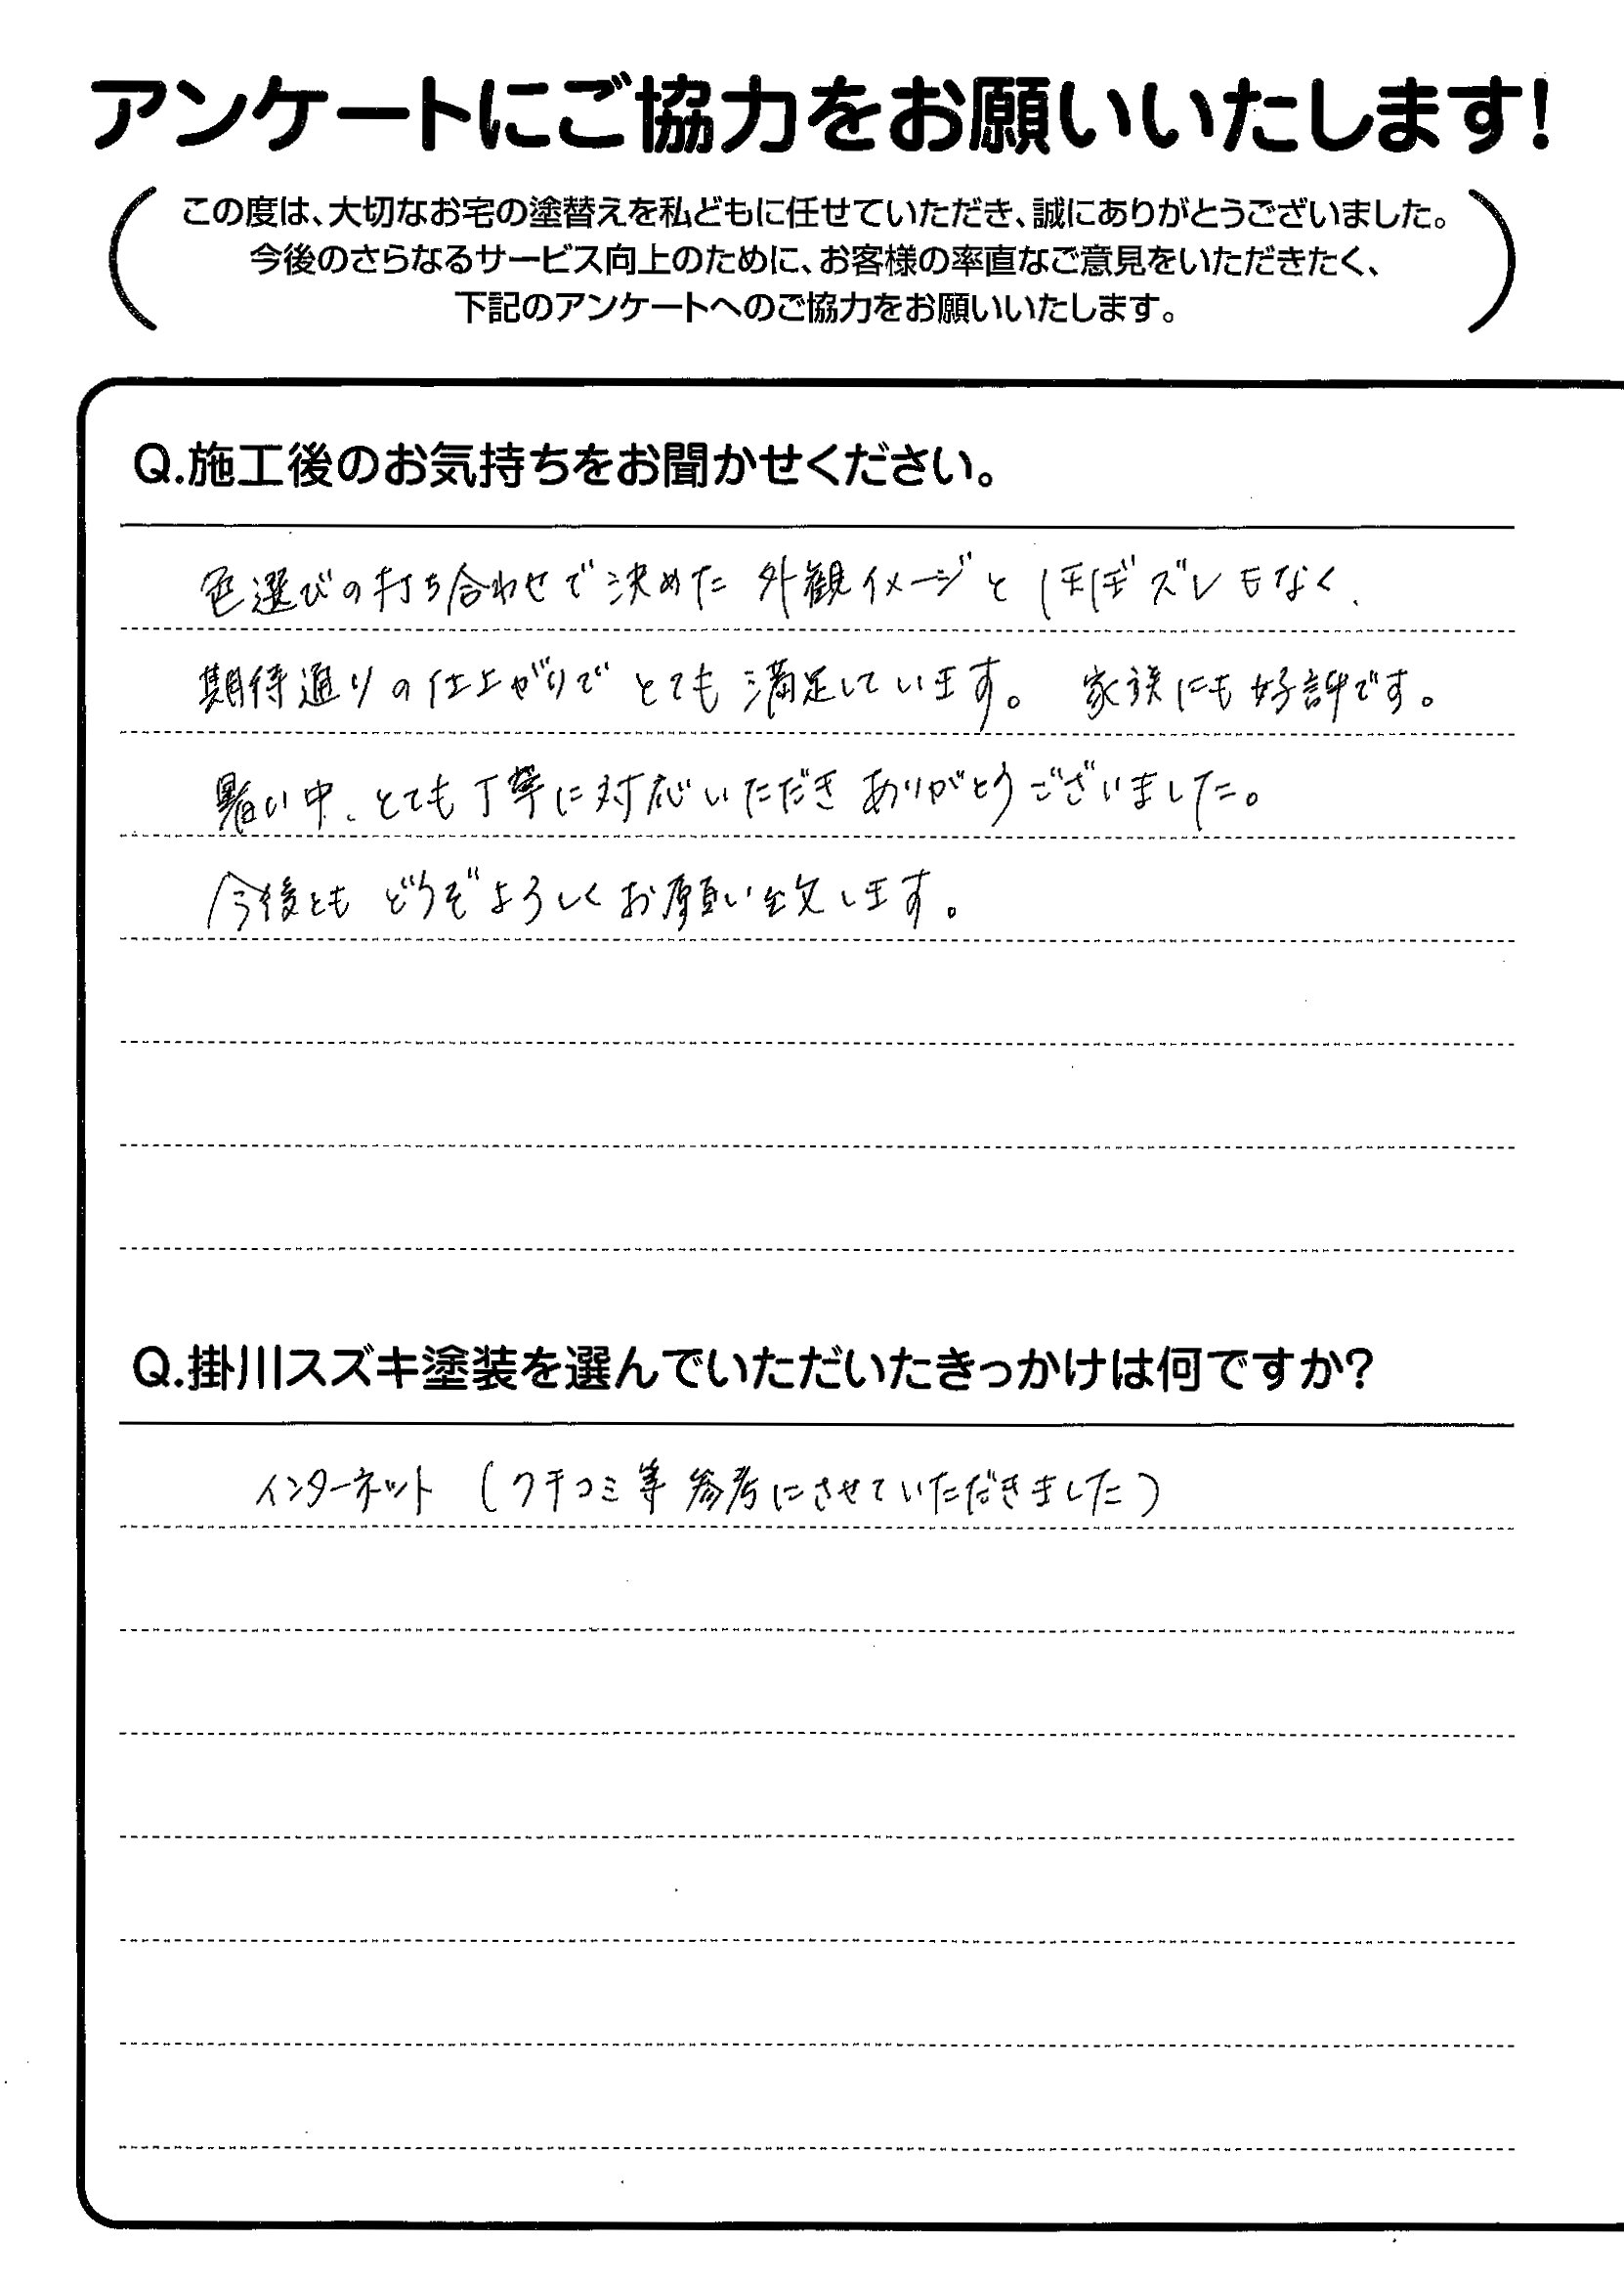 アンケートにご協力をお願いいたします!
この度は、大切なお宅の塗替えを私どもに任せていただき、誠にありがとうございました。
今後のさらなるサービス向上のために、お客様の率直なご意見をいただきたく、
下記のアンケートへのご協力をお願いいたします。
Q.施工後のお気持ちをお聞かせください。
色選びの打ち合わせで決めた 外観イメージと ほぼズレもなく、
期待通りの仕上がりで とても 満足しています。 家族にも好評です。
暑い中、とても丁寧に対応いただき ありがとうございました。
今後とも どうぞよろしくお願い致します。
Q.掛川スズキ塗装を選んでいただいたきっかけは何ですか?
インターネット (クチコミ等 参考にさせていただきました)